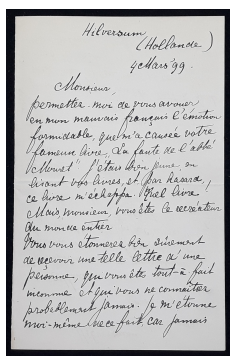 Hilversum
(Hollande)
4 Mars '99.
Monsieur,
permettez-moi de vous avouer
en mon mauvais français l'émotion
formidable, que m'a causée votre
fameux livre, "La faute de l'abbé
Mouret". J'étais bien jeune en
lisant vos livres, et par hasard,
ce livre m'échappa. Quel livre!
Mais, monsieur, vous êtes le
du monde entier
Vous vous étonnerez bien sûrement
de recevoir une telle lettre d'une
personne, qui vous est tout à fait
inconnue et qui vous ne connaîtrez
probablement jamais. Je m'étonne
moi-même de ce fait, car jamais